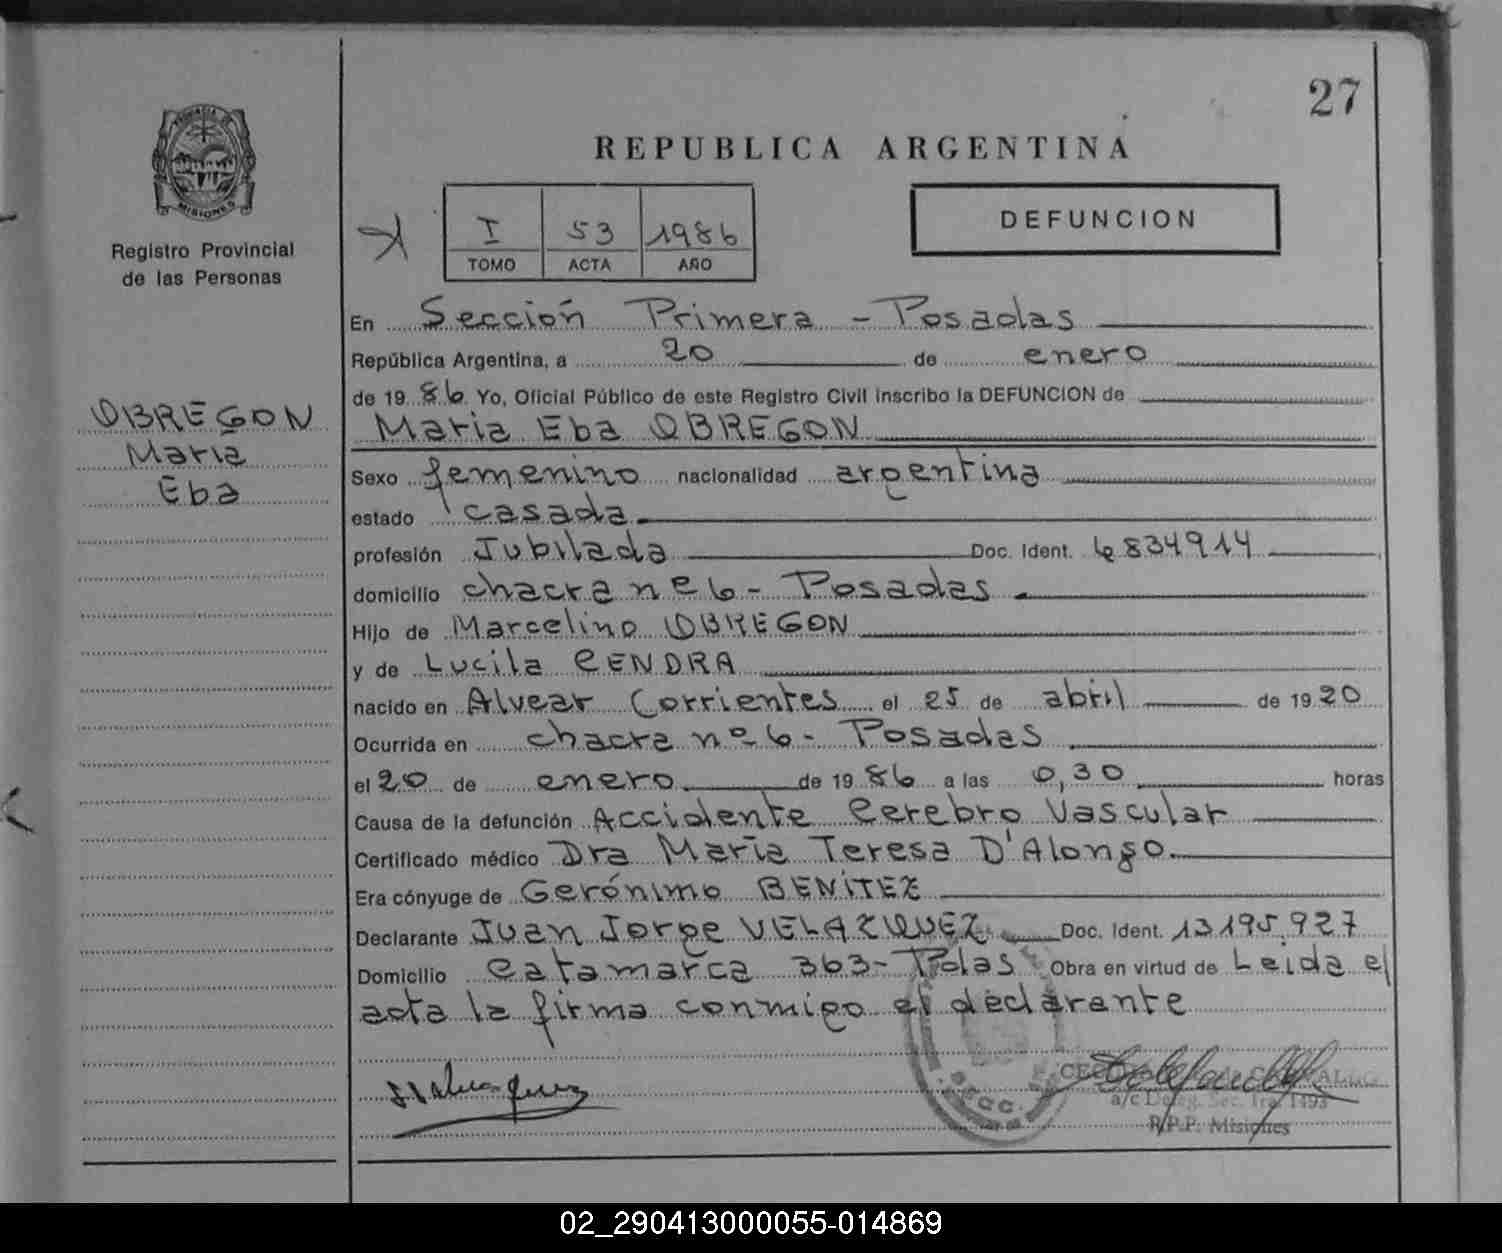 27
REPUBLICA ARGENTINA
PROVINCIA DE
MISIONES
Registro Provincial
de las Personas
I 53 1986
TOMO ACTA AÑO
DEFUNCION
OBREGON
Maria
Eba
En Sección Primera - Posadas
República Argentina, a 20 de enero
de 1986 Yo, Oficial Público de este Registro Civil inscribo la DEFUNCION de
Maria Eba OBREGON
Sexo femenino nacionalidad argentina
estado casada
profesión Jubilada Doc. Ident. 6834914
domicilio chacra nº 6 - Posadas
Hijo de Marcelino OBREGON
y de Lucila CENDRA
nacido en Alvear Corrientes el 25 de abril de 1920
Ocurrida en chacra nº 6 - Posadas
el 20 de enero de 1986 a las 0,30 horas
Causa de la defunción Accidente Cerebro Vascular
Certificado médico Dra Maria Teresa D'Alonso
Era cónyuge de Gerónimo BENÍTEZ
Declarante Juan Jorge VELAZQUEZ Doc. Ident. 13195.927
Domicilio Catamarca 363 - Pdas Obra en virtud de Leida el
acta la firma conmigo el declarante
a/c Deleg. Sec. 1ra. 1493
R.P.P. Misiones
02_290413000055-014869